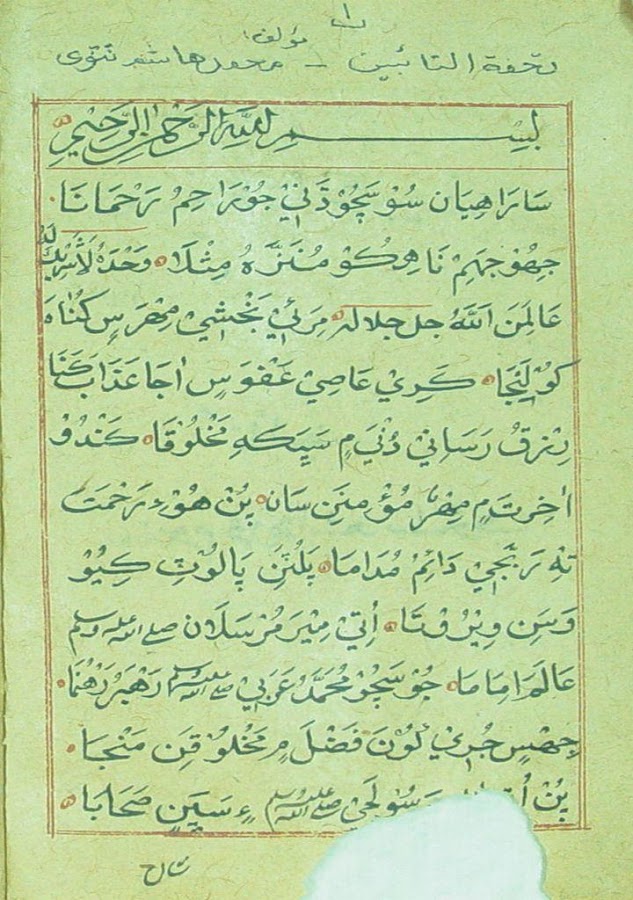 ١
تحفة التائبين - مؤلف: محمد هاشم تتوى
بسم الله الرحمن الرحيم
ساراهيان سو سچو ڌڻي جو راحم رحمانا
جهو جهم ناهكو منزه مثلا وحده لا شريك له
عالمن الله جل جلاله مرئي بخشي مهر س گناه
كو لنجا كري عاصي عفو س اجا عذاب كنا
رزق رساني دني م سيكه مخلوقا كندو
اخرت م مهر مؤمنن سان پن هو رحمت
ته ربجي دائم مداما پلئن پالوٽ كيو
وسن ويروتا أتي مير مرسلان صلى الله عليه وسلم
عالم اماما جو سچو محمد عربي صلى الله عليه وسلم رهبر رهنما
جهس جري لون فضل م مخلوقن منجا
پن صلى الله عليه وسلم ۽ سين صحابا